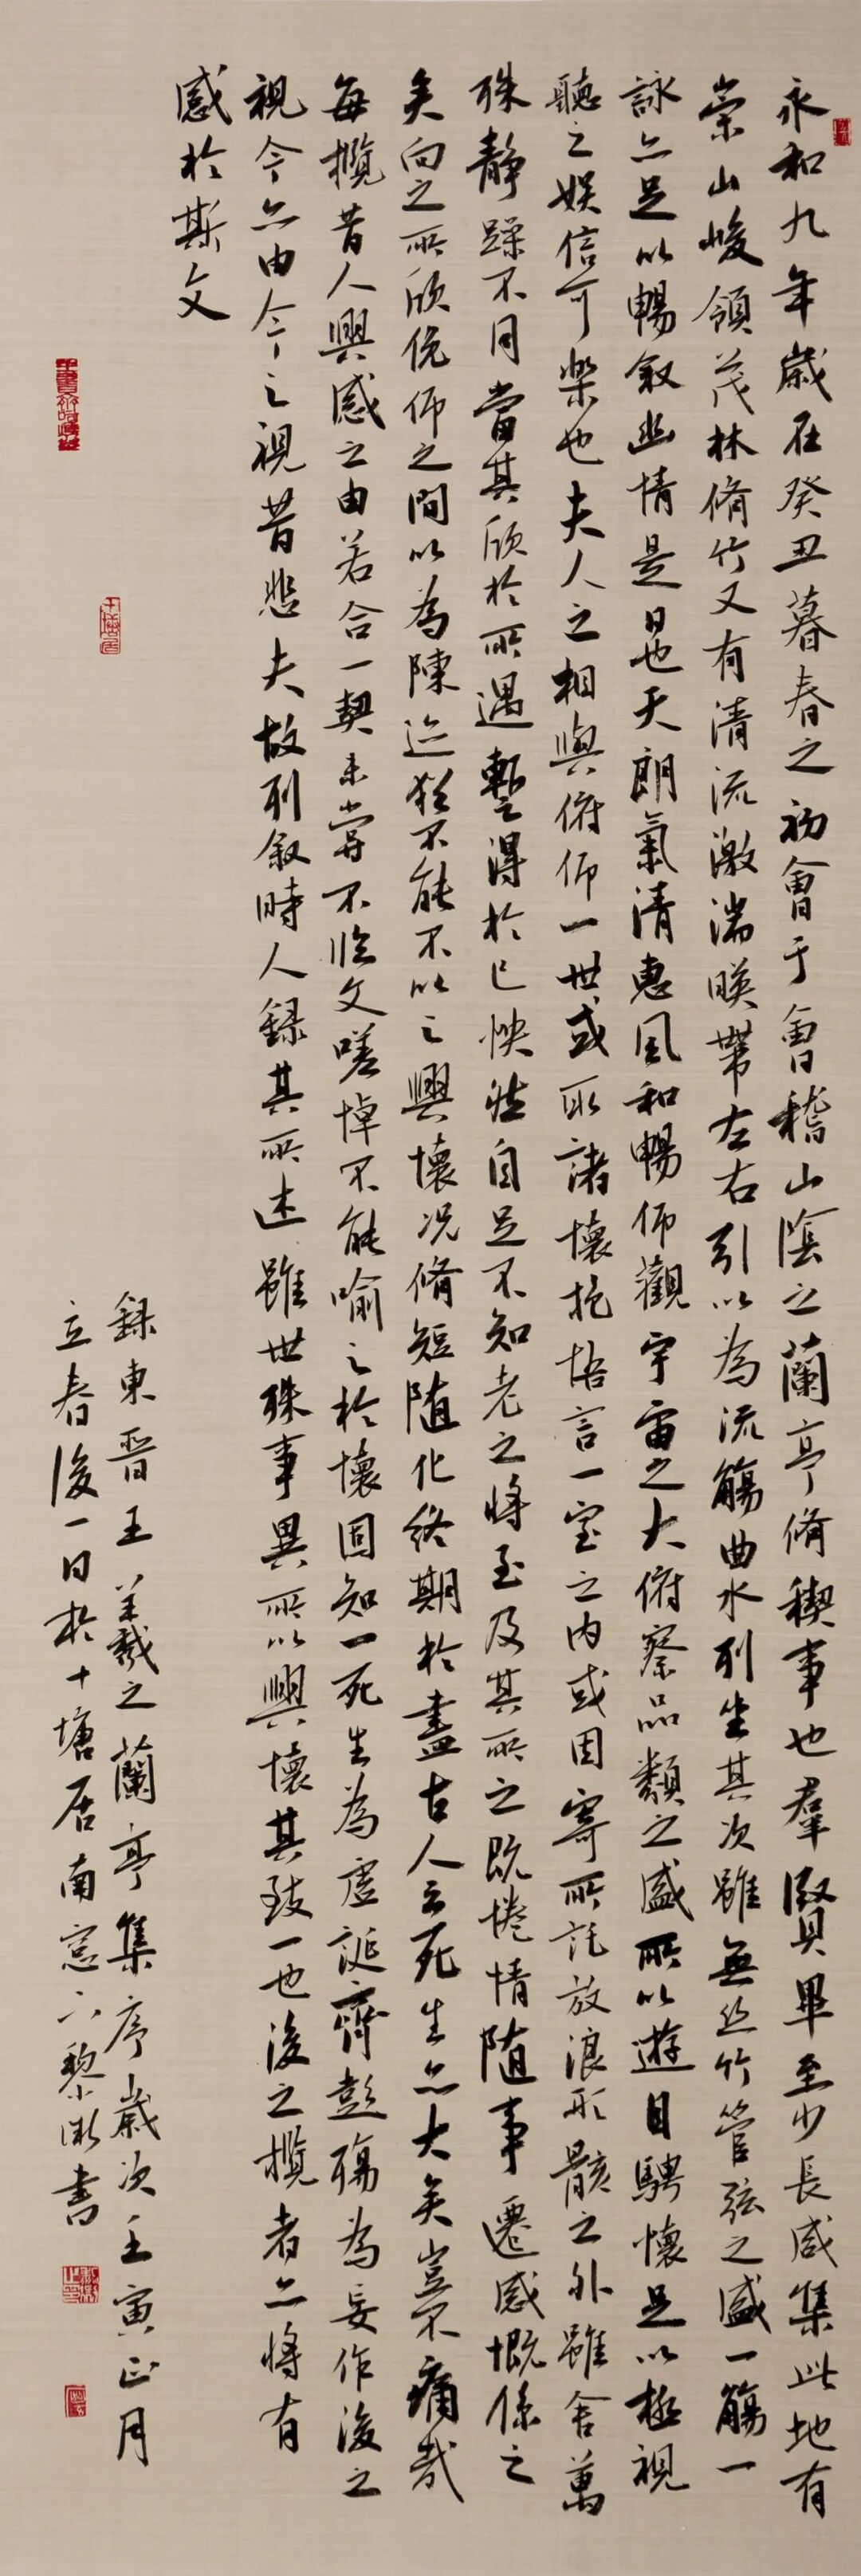 永和九年歲在癸丑暮春之初會于會稽山陰之蘭亭脩稧事也羣賢畢至少長咸集此地有
崇山峻領茂林脩竹又有清流激湍暎帶左右引以為流觴曲水列坐其次雖無丝竹管弦之盛一觴一
詠亦足以暢叙幽情是日也天朗氣清惠風和暢仰觀宇宙之大俯察品類之盛所以遊目騁懷足以極視
聽之娛信可樂也夫人之相與俯仰一世或取諸懷抱悟言一室之內或因寄所託放浪形骸之外雖舍萬
殊靜躁不同當其欣於所遇暫得於己怏然自足不知老之將至及其所之既惓情隨事遷感慨係之
矣向之所欣俛仰之間以為陳迹猶不能不以之興懷況脩短隨化終期於盡古人云死生亦大矣豈不痛哉
每攬昔人興感之由若合一契未嘗不臨文嗟悼不能喻之於懷固知一死生為虛誕齊彭殤為妄作後之
視今亦由今之視昔悲夫故列叙時人錄其所述雖世殊事異所以興懷其致一也後之攬者亦將有
感於斯文
錄東晉王羲之蘭亭集序歲次壬寅正月
立春後一日於十塘居南窓下黎澂書
十塘居